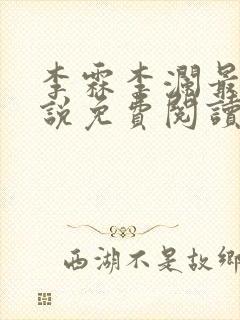 李霖李瀾最
說免費閱讀
西湖不是故鄉